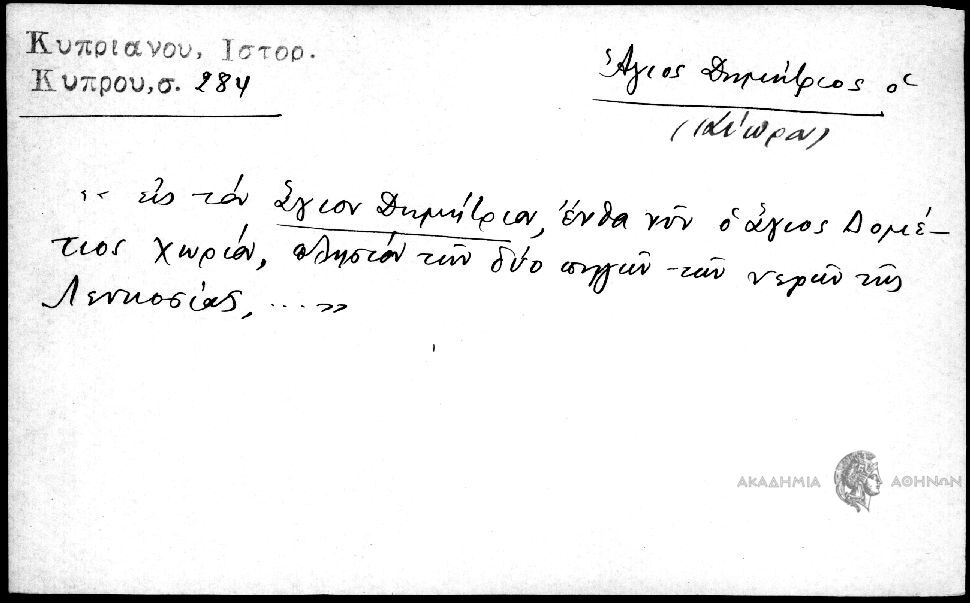 Κυπριανου, Ιστορ.
Κυπρου,σ. 284
Ἅγιος Δημήτριος ὁ
(Κύπρον)
" εἰς τὸν Ἅγιον Δημήτριον, ἔνθα νῦν ὁ Ἅγιος Δομέ-
τιος χωρίον, πλησίον τῶν δύο πηγῶν τῶν νερῶν τῆς
Λευκοσίας, ...»
ΑΚΑΔΗΜΙΑ ΑΘΗΝΩΝ